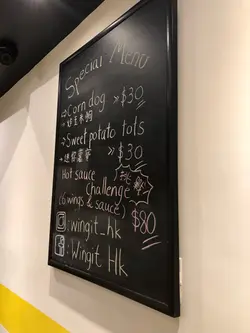 Special Menu
→ Corn dog » $30
Sweet potato tots
» $30
Hot sauce
challenge
(6 wings & sauce) $80
: wingit_hk
: Wingit Hk